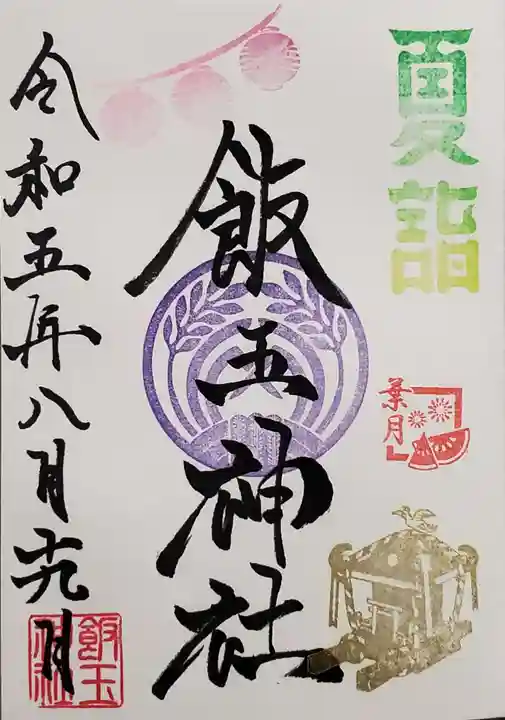 夏詣
葉月
飯玉神社
令和五年八月廿九日
飯玉
神社